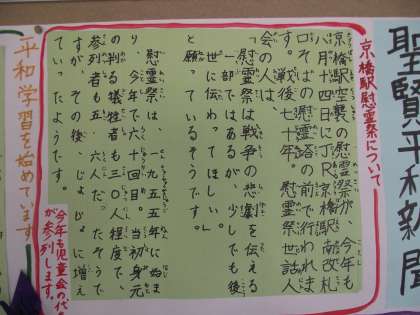 聖賢平和新聞
京橋駅慰霊祭について
京橋駅空襲の慰霊祭が、今年も
八月十四日にJR京橋駅南改札
口そばの慰霊塔の前で行われま
す。戦後七十年、慰霊祭世話人
会の人は、
「慰霊祭は戦争の悲劇を伝える
一部ではあるが、少しでも後
世に伝わってほしい。」
と願っているそうです。
慰霊祭は、一九五五年に始ま
り、今年で六十回目。当初、身元
の判る犠牲者も三〇人程度で、
参列者も五、六人だったそうで
すが、その後、じょじょに増え
ていったようです。
今年も児童会の代
が参列します。
平和学習を始めています